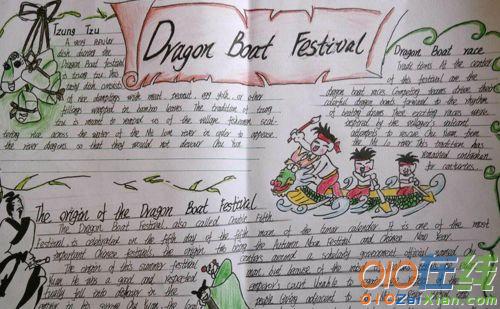 Dragon Boat Festival
Tzung Tzu
A very popular
dish during the
Dragon Boat festival
is tzung tzu. This
tasty dish consists
of rice dumplings with meat, peanut, egg yolk, or other
fillings wrapped in bamboo leaves. The tradition of tzung
tzu is meant to remind us of the village fishermen scat-
tering rice across the water of the Mi Lom river in order to appease
the river dragons so that they would not devour Chu Yuan.
Dragon Boat race
Traditions At the center
of this festival are the
dragon boat races. Competing teams drive their
colorful dragon boats forward to the rhythm
of beating drums. These exciting races were
inspired by the villager's valiant
attempts to rescue Chu Yuan from
the Mi Lo river. This tradition has
remained unbroken
for centuries.
The origin of the Dragon Boat Festival
The Dragon Boat Festival, also called Double Fifth
Festival, is celebrated on the fifth day of the moon of the lunar calendar. It is one of the most
important Chinese festivals, the Autumn Moon Festival and Chinese New Year.
The origin of this summer festival centers around a scholarly government official
Yuan. He was a good and respected man, but because of the
into disfavor in the emperor's court. Unable to
people living adjacent to
910在线
910ZaiXian.com